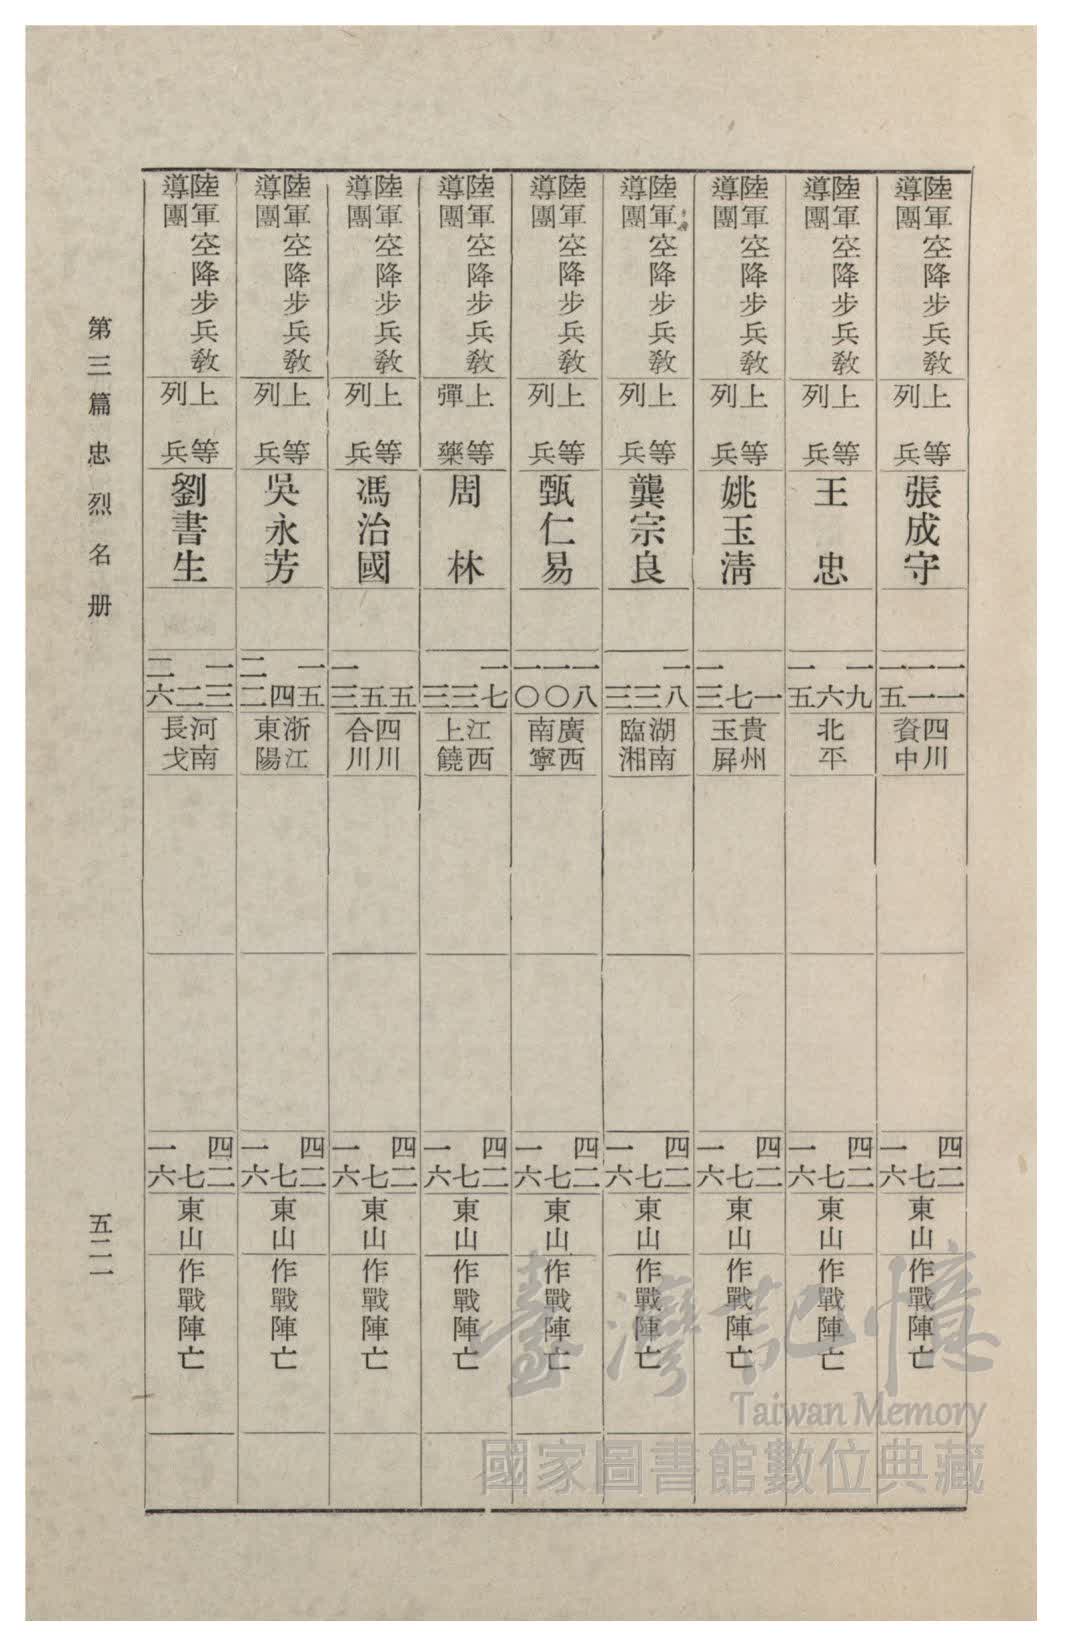 陸軍空降步兵教導團 上等列兵 張成守 一一 一一 一五 四川資中 四二 七 一六 東山 作戰陣亡
陸軍空降步兵教導團 上等列兵 王忠 一九 六 一五 北平 四二 七 一六 東山 作戰陣亡
陸軍空降步兵教導團 上等列兵 姚玉清 一 七 一三 貴州玉屏 四二 七 一六 東山 作戰陣亡
陸軍空降步兵教導團 上等列兵 龔宗良 一八 三 三 湖南臨湘 四二 七 一六 東山 作戰陣亡
陸軍空降步兵教導團 上等列兵 甄仁易 一八 一〇 一〇 廣西南寧 四二 七 一六 東山 作戰陣亡
陸軍空降步兵教導團 上等彈藥 周林 一七 三 三 江西上饒 四二 七 一六 東山 作戰陣亡
陸軍空降步兵教導團 上等列兵 馮治國 五 五 一三 四川合川 四二 七 一六 東山 作戰陣亡
陸軍空降步兵教導團 上等列兵 吳永芳 一五 四 二二 浙江東陽 四二 七 一六 東山 作戰陣亡
陸軍空降步兵教導團 上等列兵 劉書生 一三 二 二六 河南長戈 四二 七 一六 東山 作戰陣亡
第三篇 忠烈名册
五二一
臺灣記憶
Taiwan Memory
國家圖書館數位典藏